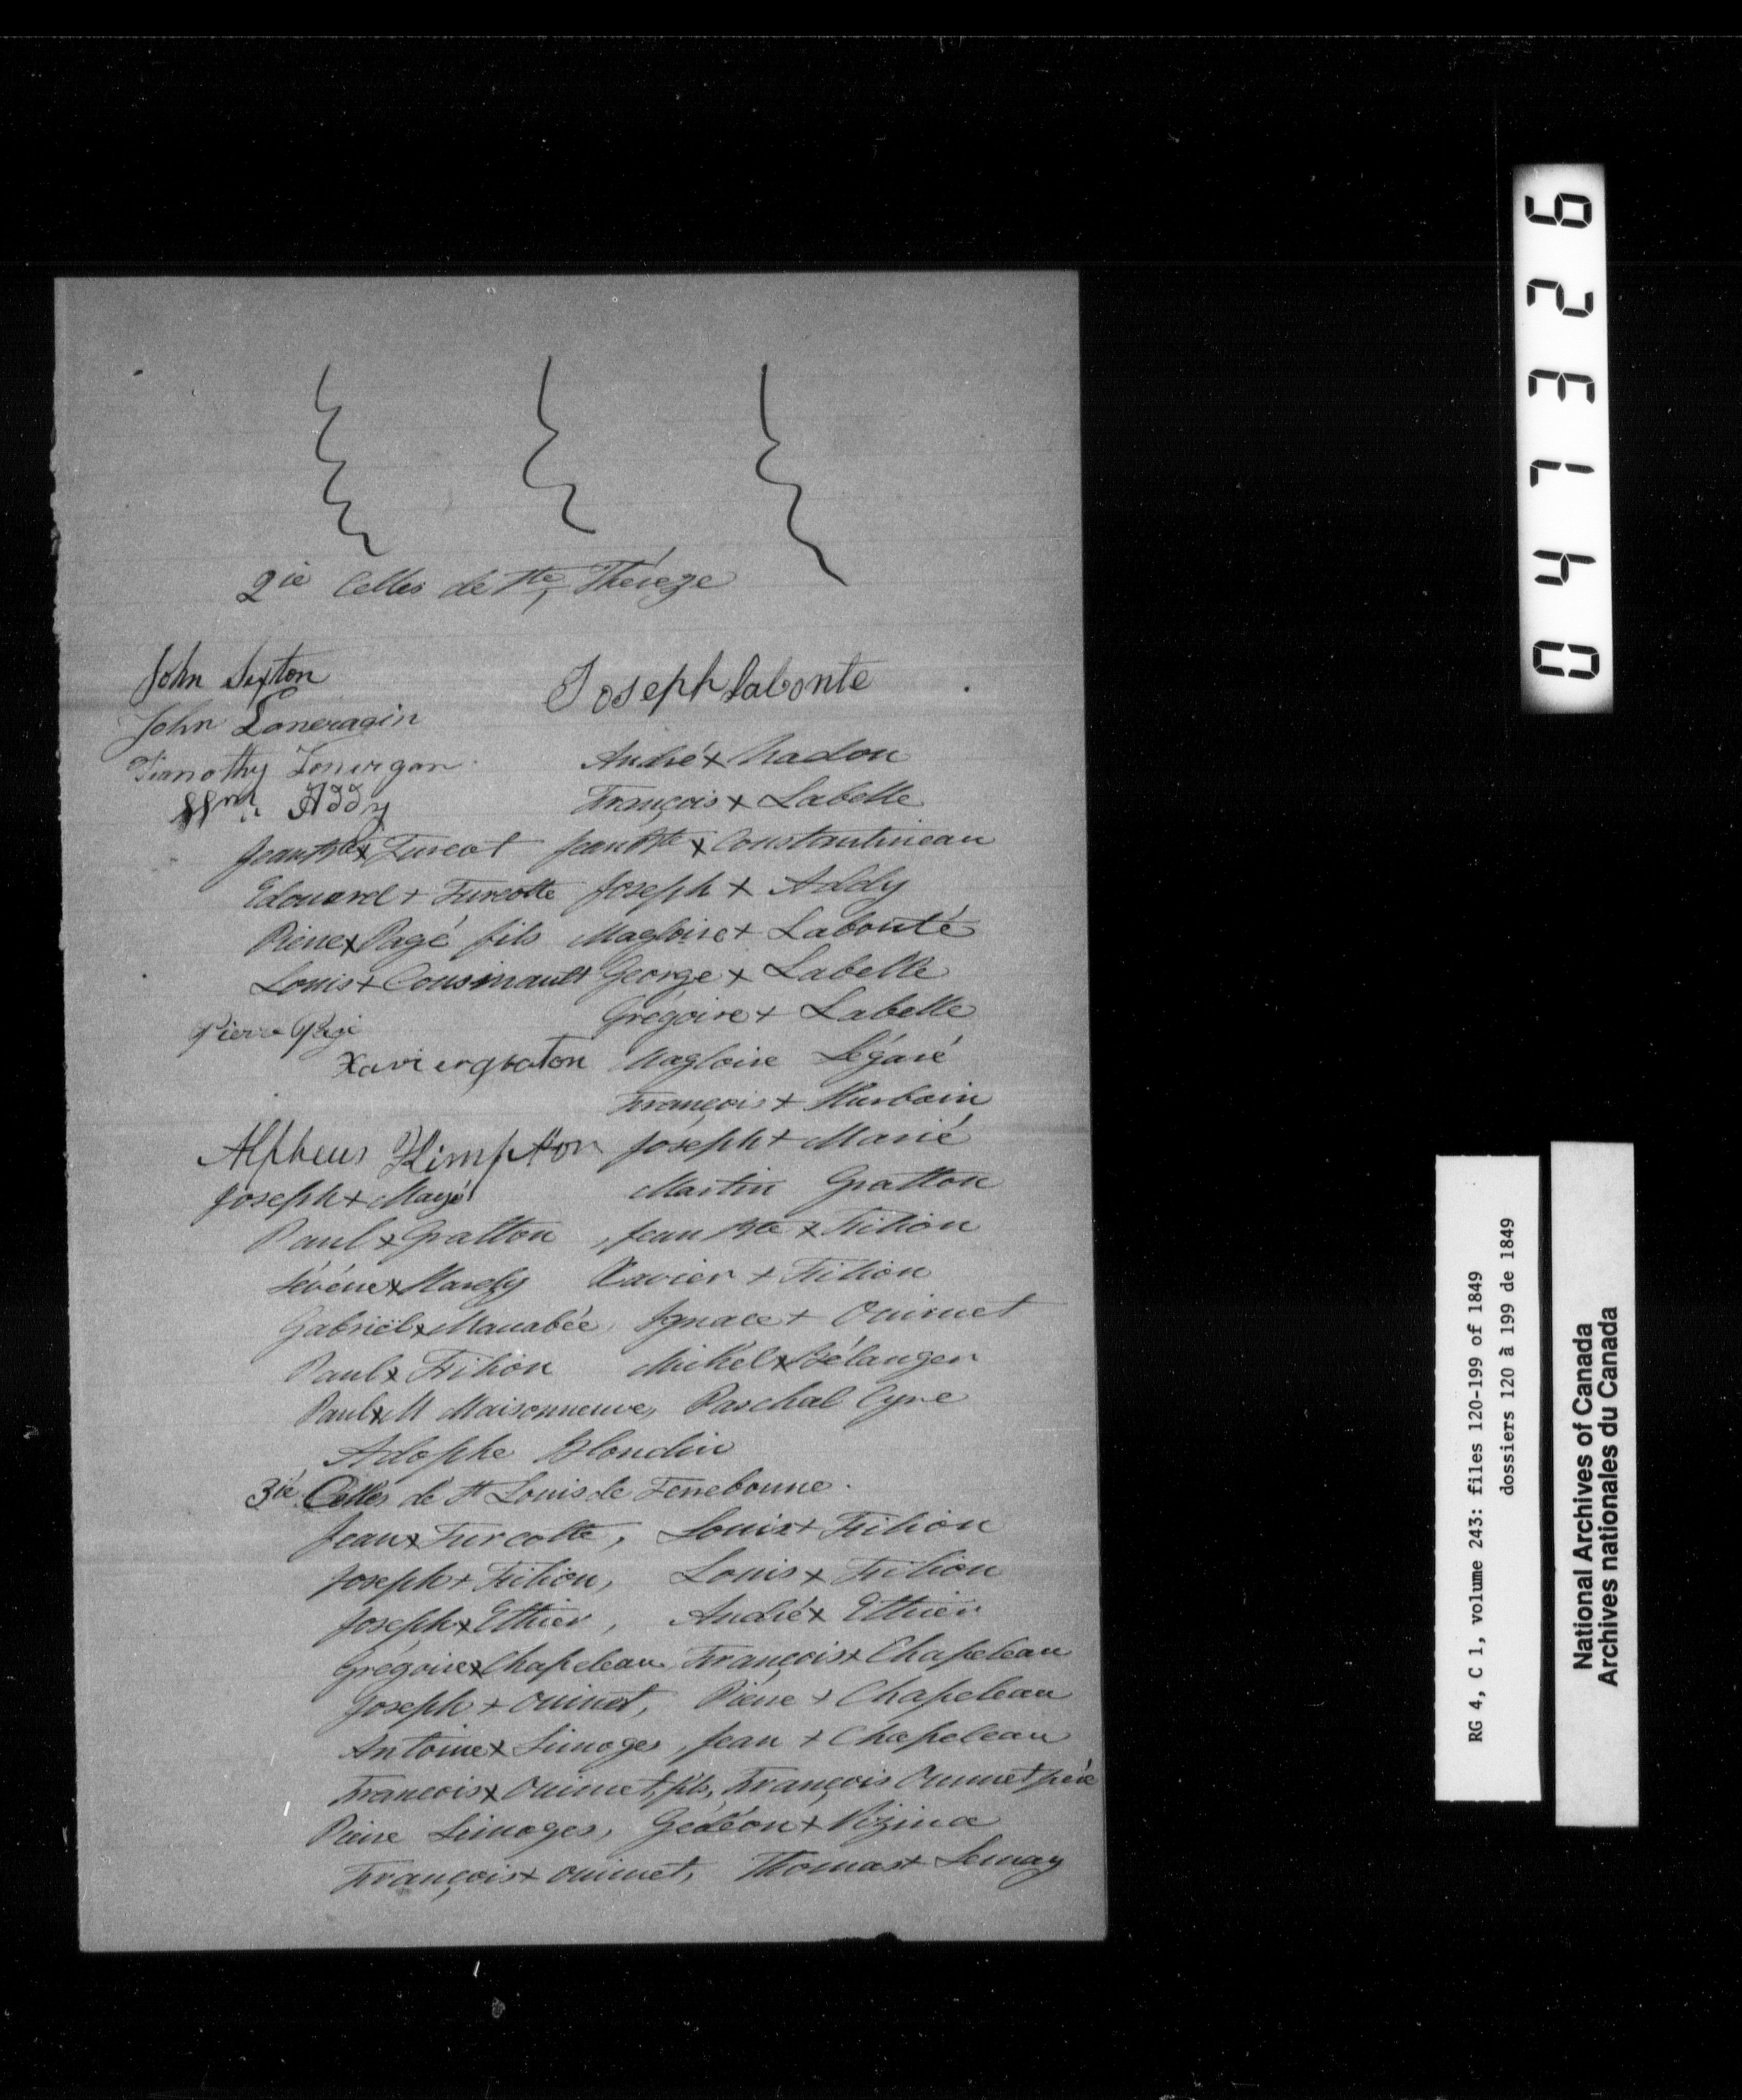 2ie Celles de Ste, Thérèze
John Sexton Joseph labonte
John Loneragin
Timothy Lonergan André x Nadon
Wm. Addy François x Labelle
Jean Bte x Turcot Jean Bte x Constantineau
Edouard + Turcotte Joseph x Addy
Pierre x Pagé fils Magloire + Labonté
Louis + Cousinault George x Labelle
Grégoire + Labelle
Pierre Pagé
Xavier graton Magloire Légaré
François + Hurbain
Alpheus Kimpton Joseph + Marié
Joseph + Mayé Martin Gratton
Paul x Gratton, Jean Bte x Filion
Sévère x Hardy Xavier + Filion
Gabriël x Macabée, Ignace + Ouimet
Paul x Filion Michel x Bélanger
Paul x M Maisonneuve, Paschal Cyre
Adophe Blondin
3ie Celles de St Louis de Terrebonne.
Jean x Turcotte, Louis + Filion
Joseph + Filion, Louis x Filion
Joseph x Ethier, André x Ethier
Grégoire x Chapeleau, François x Chapeleau
Joseph + Ouimet, Pierre + Chapeleau
Antoine x Limoges, Jean + Chapeleau
Francois x Ouimet, fils, François Ouimet père
Pierre Limoges, Gédéon + Vizina
François + Ouimet, Thomas + Lemay
047326
RG 4, C 1, volume 243: files 120-199 of 1849
dossiers 120 à 199 de 1849
National Archives of Canada
Archives nationales du Canada